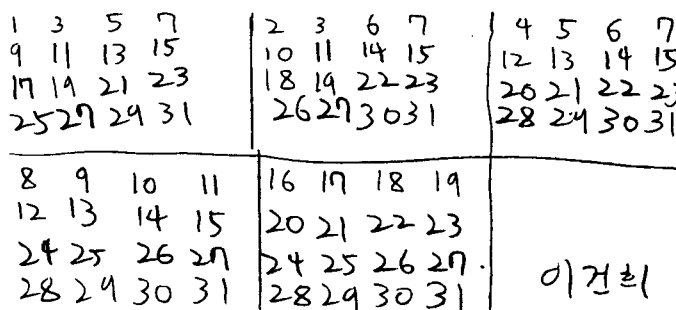 1 3 5 7
9 11 13 15
17 19 21 23
25 27 29 31
2 3 6 7
10 11 14 15
18 19 22 23
26 27 30 31
4 5 6 7
12 13 14 15
20 21 22 23
28 29 30 31
8 9 10 11
12 13 14 15
24 25 26 27
28 29 30 31
16 17 18 19
20 21 22 23
24 25 26 27
28 29 30 31
이건희